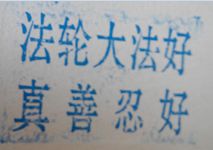 法轮大法好
真善忍好